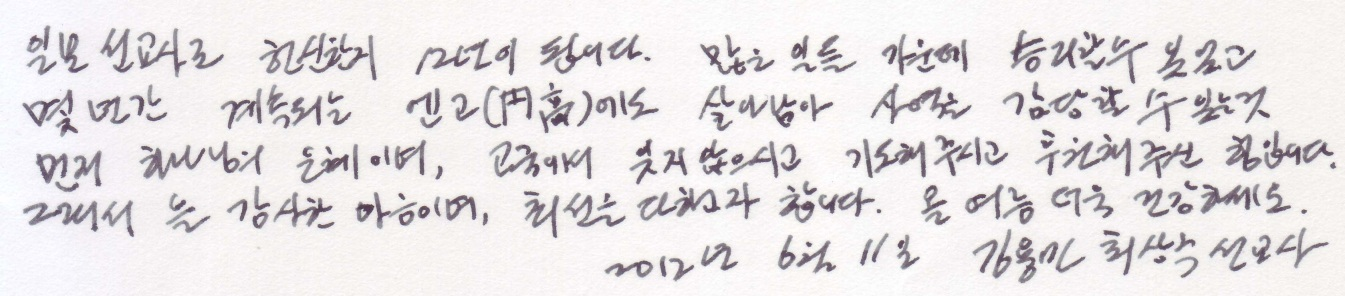 일본 선교사로 헌신한지 12년이 됩니다. 많은 일들 가운데 승리할수 있었고
몇 년간 계속되는 엔고(円高)에도 살아남아 사역을 감당할 수 있는것
먼저 하나님의 은혜이며, 고국에서 잊지 않으시고 기도해 주시고 후원해 주신 힘입니다.
그래서 늘 감사한 마음이며, 최선을 다하고자 합니다. 올 여름 더욱 건강하세요.
2012년 6월 11일 김용민 최상숙 선교사